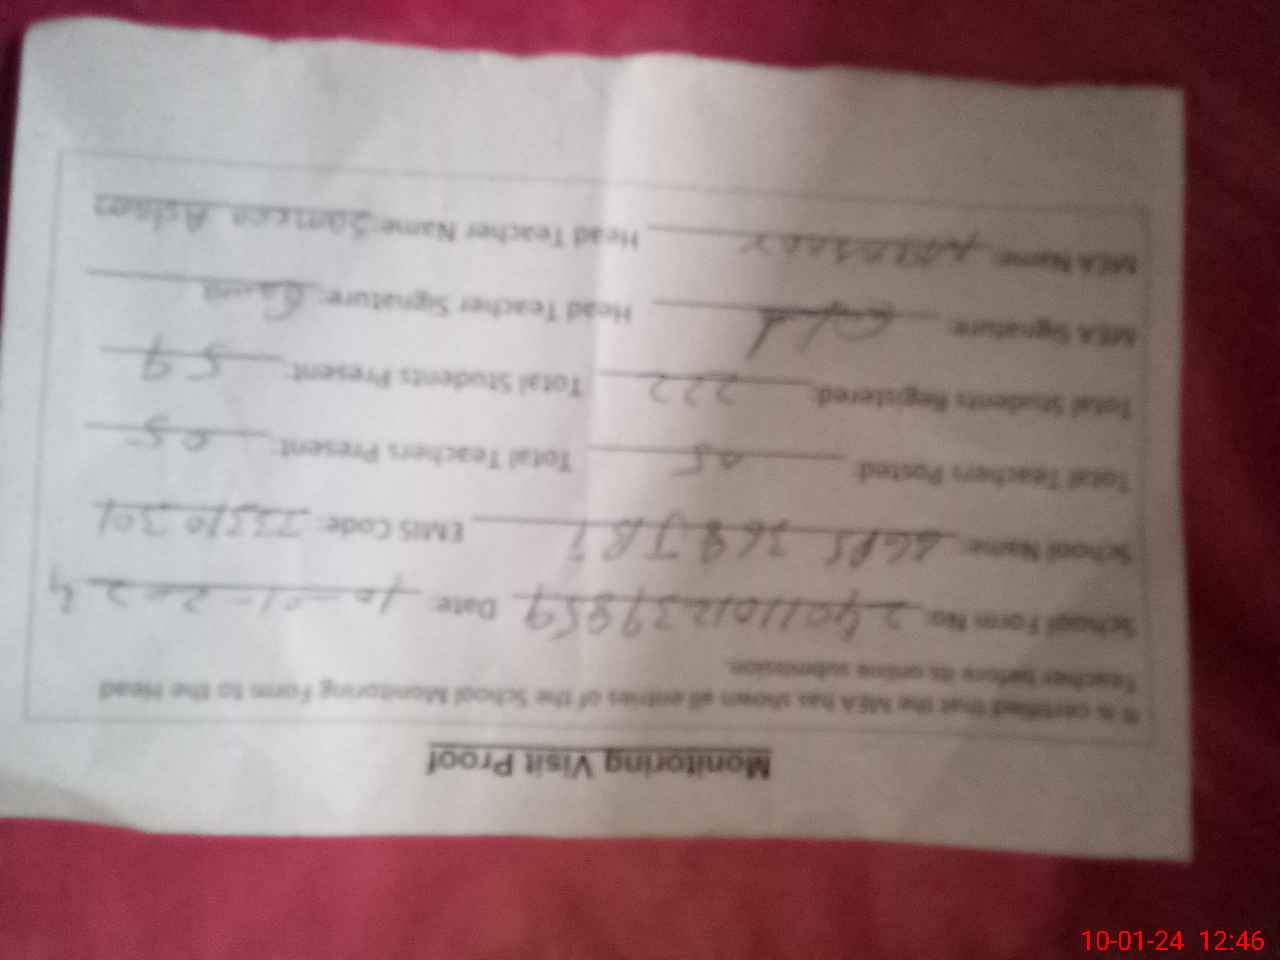 Monitoring Visit Proof
It is certified that the MEA has shown all entries of the School Monitoring Form to the Head
Teacher before its online submission.
School Form No: 2401101239859 Date: 10-01-2024
School Name: GGPS 368 JB 1 EMIS Code: 33310301
Total Teachers Posted: 05 Total Teachers Present: 05
Total Students Registered: 222 Total Students Present: 59
MEA Signature: Head Teacher Signature:
MEA Name: Head Teacher Name:
10-01-24 12:46